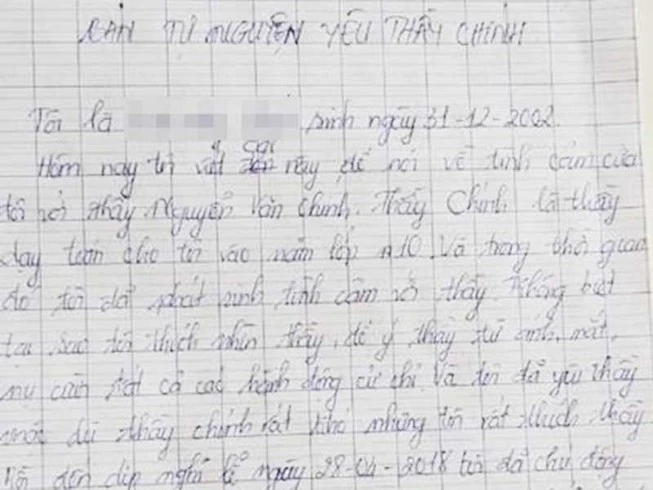 BẢN TỰ NGUYỆN YÊU THẦY CHÍNH
Tôi là sinh ngày 31-12-2002
Hôm nay tôi viết này để nói về tình cảm của
tôi với thầy Nguyễn Văn Chính. Thầy Chính là thầy
dạy toán cho tôi vào năm lớp 10. Và trong thời gian
đó tôi đã phát sinh tình cảm với thầy. Không biết
tại sao tôi thích nhìn thầy, để ý thầy từ ánh mắt,
nụ cười tất cả các hành động cử chỉ. Và tôi đã yêu thầy
mặc dù thầy chính rất nhưng tôi rất thích thầy
đến dịp nghỉ lễ ngày 28-04-2018 tôi đã chủ động